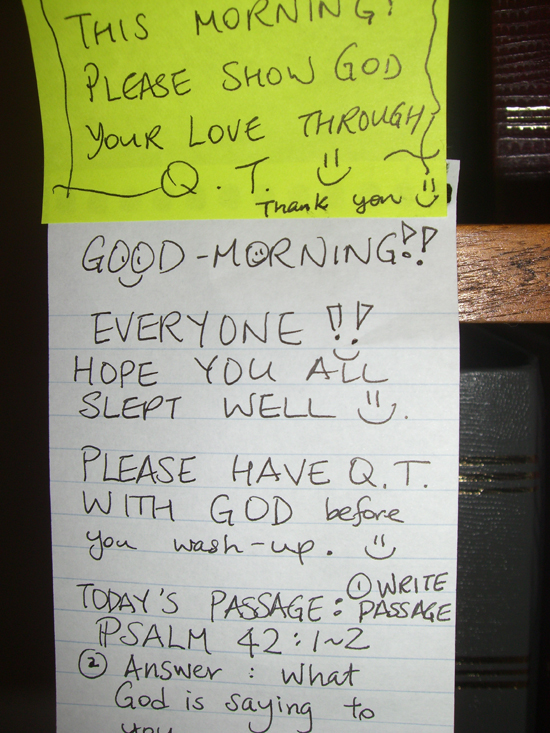 THIS MORNING!
PLEASE SHOW GOD
YOUR LOVE THROUGH
Q.T.
Thank you
GOOD-MORNING!!
EVERYONE !!
HOPE YOU ALL
SLEPT WELL .
PLEASE HAVE Q.T.
WITH GOD before
you wash-up.
TODAY'S PASSAGE: ① WRITE PASSAGE
PSALM 42:1~2
② Answer : What
God is saying to
you